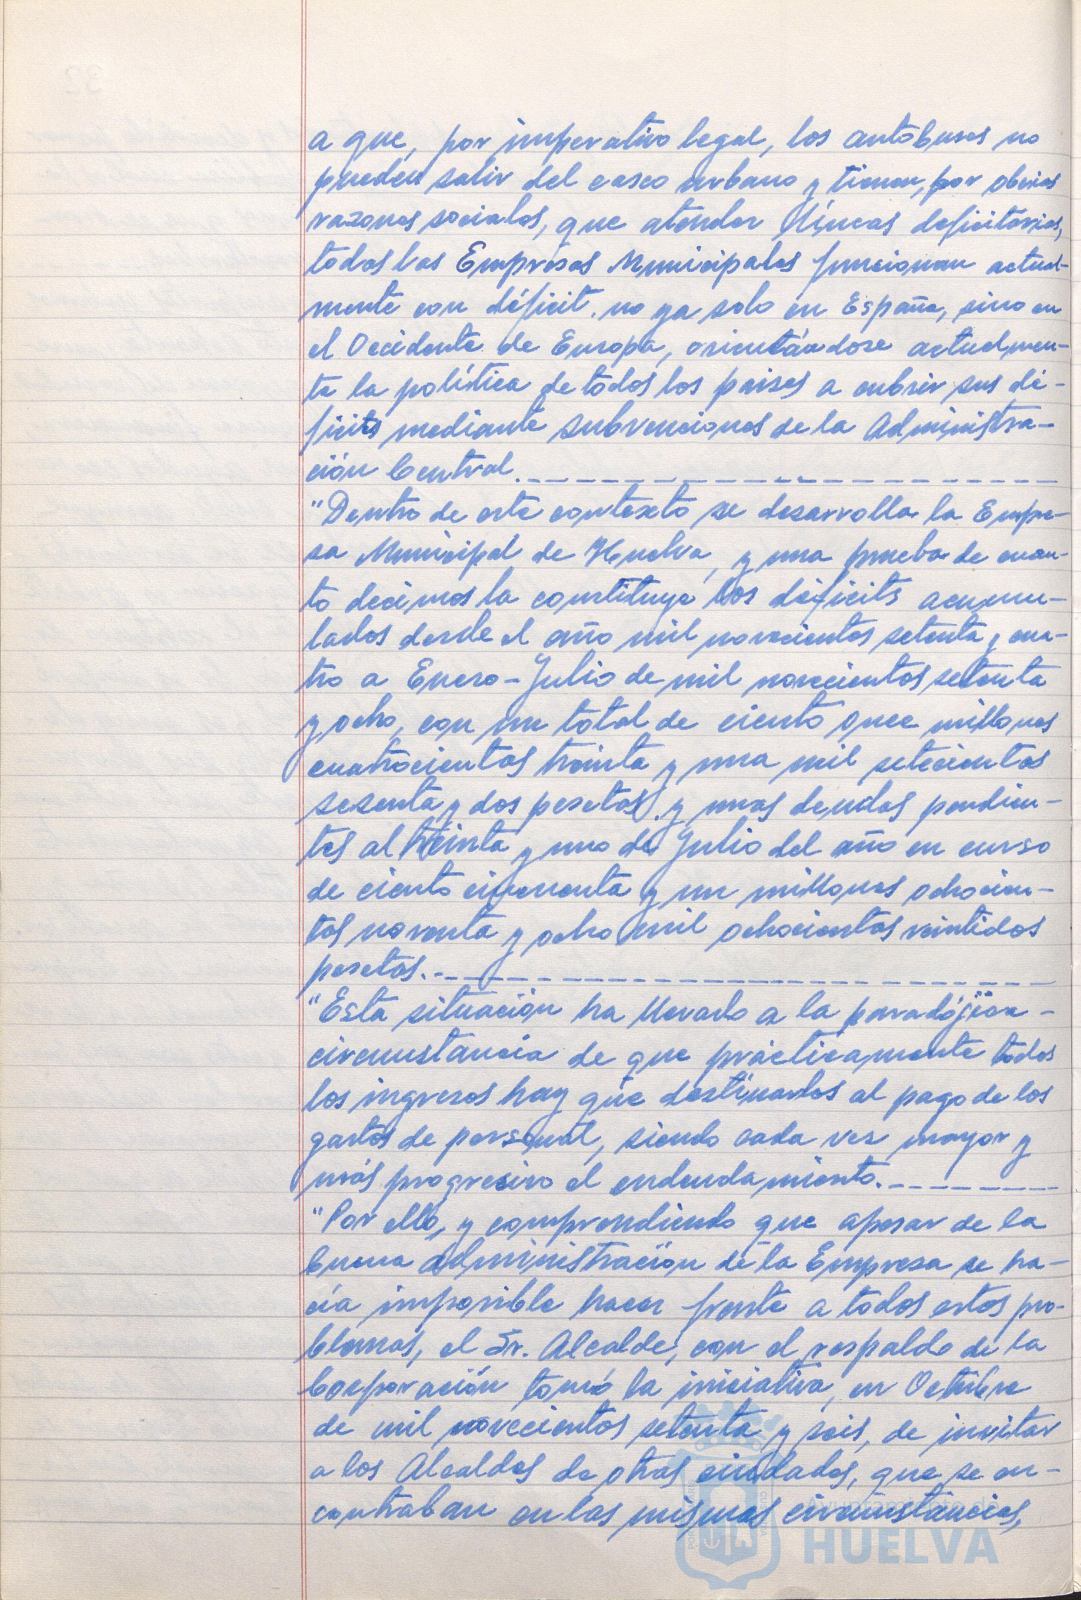 a que, por imperativo legal, los autobuses no
pueden salir del casco urbano y tienen, por obvias
razones sociales, que atender líneas deficitarias,
todas las Empresas Municipales funcionan actual-
mente con déficit, no ya solo en España, sino en
el Occidente de Europa, orientándose actualmen-
te la política de todos los paises a cubrir sus dé-
ficits mediante subvenciones de la Administra-
ción Central.
"Dentro de este contexto se desarrolla la Empre-
sa Municipal de Huelva, y una prueba de cuan-
to decimos la constituye los déficits acumu-
lados desde el año mil novecientos setenta y cua-
tro a Enero-Julio de mil novecientos setenta
y ocho, con un total de ciento once millones
cuatrocientas treinta y una mil setecientas
sesenta y dos pesetas y unas deudas pendien-
tes al treinta y uno de Julio del año en curso
de ciento cincuenta y un millones ochocien-
tas noventa y ocho mil ochocientas veintidos
pesetas.
"Esta situación ha llevado a la paradójica
circunstancia de que prácticamente todos
los ingresos hay que destinarlos al pago de los
gastos de personal, siendo cada vez mayor y
más progresivo el endeudamiento.
"Por ello, y comprendiendo que apesar de la
buena administración de la Empresa se ha-
cía imposible hacer frente a todos estos pro-
blemas, el Sr. Alcalde, con el respaldo de la
Corporación tomó la iniciativa, en Octubre
de mil novecientos setenta y seis, de invitar
a los Alcaldes de otras ciudades, que se en-
contraban en las mismas circunstancias,
Ayuntamiento de
HUELVA